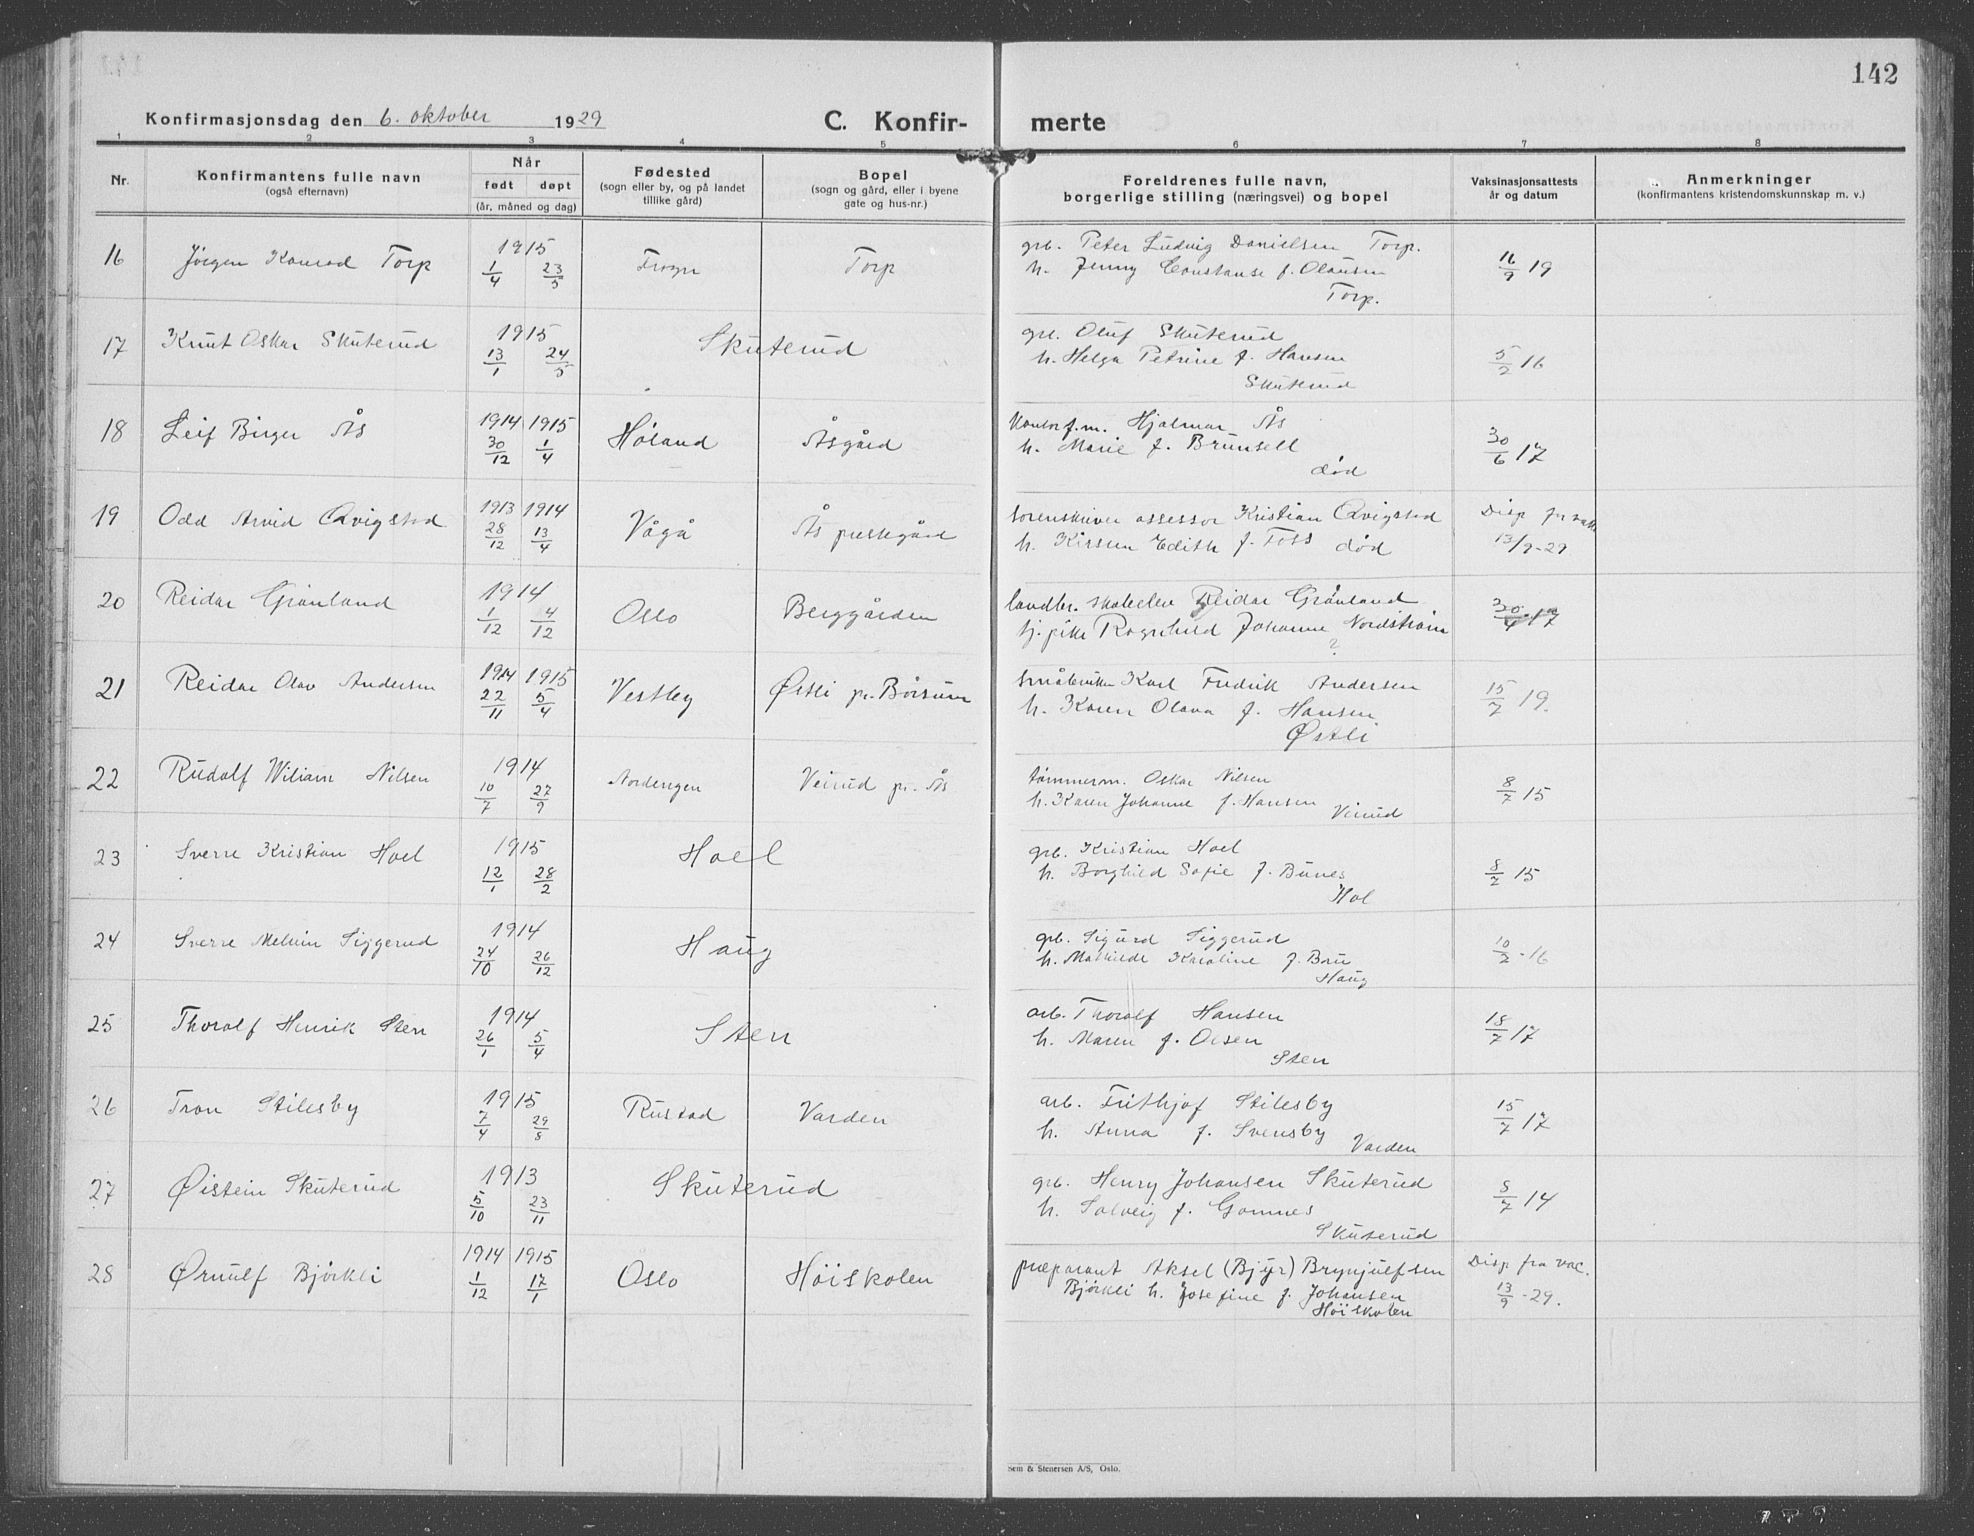 142
Konfirmasjonsdag den 6. oktober 1929
C. Konfir- merte
1 2 3 4 5 6 7 8
Nr.
Konfirmantens fulle navn
(også efternavn)
Når
født døpt
(år, måned og dag)
Fødested
(sogn eller by, og på landet
tillike gård)
Bopel
(sogn og gård, eller i byene
gate og hus-nr.)
Foreldrenes fulle navn,
borgerlige stilling (næringsvei) og bopel
Vaksinasjonsattests
år og datum
Anmerkninger
(konfirmantens kristendomskunnskap m. v.)
16 Jørgen Konrad Torp 1915 1/4 23/5 Frogn Torp
grb. Peter Ludvig Danielsen Torp.
h. Jenny Constanse f. Olausen
Torp.
16/9 19
17 Knut Oskar Skuterud 1915 13/1 24/5 Skuterud
grb. Oluf Skuterud
h. Helga Petrine f. Hansen
Skuterud
5/2 16
18 Leif Birger Ås 1914 30/12 1915 1/4 Høland Åsgård
kontorf.m. Hjalmar Ås
h. Marie f. Brunsell
død
30/6 17
19 Odd Arvid Qvigstad 1913 28/12 1914 13/4 Vågå Ås prestegård
sorenskriver assessor Kristian Qvigstad
h. Kirsten Edith f. Foss død
Disp fra vakt
13/9-29
20 Reidar Grønland 1914 1/12 4/12 Oslo Berggården
landbr. skoleelev Reidar Grønland
tj.pike Ragnhild Johanne Nordstrøm
?
30/4 17
21 Reidar Olav Andersen 1914 22/11 1915 5/4 Vestby Østli pr. Børsum
småbruker Karl Fredrik Andersen
h. Karen Olava f. Hansen
Østli
15/7 19.
22 Rudolf Wiliam Nilsen 1914 10/7 27/9 Nordengen Veirud pr. Ås
tømmerm. Oskar Nilsen
h. Karen Johanne f. Hansen Veirud
8/7 15
23 Sverre Kristian Hoel 1915 12/1 28/2 Hoel
grb. Kristian Hoel
h. Borghild Sofie f. Bunes
Hol
8/7 15
24 Sverre Melvin Siggerud 1914 24/10 26/12 Haug
grb. Sigurd Siggerud
h. Mathilde Karoline f. Bru
Haug
10/2-16
25 Thoralf Henrik Sten 1914 26/1 5/4 Sten
arb. Thoralf Hansen
h. Maren f. Olsen
Sten
18/7 17
26 Tron Stilesby 1915 7/4 29/8 Rustad Varden
arb. Frithjof Stilesby
h. Anna f. Svensby Varden
15/7 17
27 Øistein Skuterud 1913 5/10 23/11 Skuterud
grb. Henry Johansen Skuterud
h. Solveig f. Gomnes
Skuterud
8/7 14
28 Ørnulf Bjørkli 1914 1/12 1915 17/1 Oslo Høiskolen
preparant Aksel (Bjyr) Brynjulfsen
Bjørkli h. Josefine f. Johansen
Høiskolen
Disp fra vac.
13/9-29.
Sem & Stenersen A/S, Oslo.